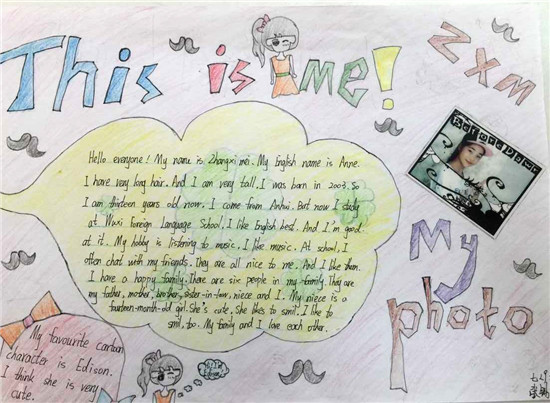 This is me!
Zxm
Hello everyone! My name is Zhangxi mei. My English name is Anne.
I have very long hair. And I am very tall. I was born in 2003. So
I am thirteen years old now. I come from Anhui. But now I study
at Wuxi Foreign Language School. I like English best. And I'm good
at it. My hobby is listening to music. I like music. At school, I
often chat with my friends. They are all nice to me. And I like them.
I have a happy family. There are six people in my family. They are
my father, mother, brother, sister-in-law, niece and I. My niece is a
fourteen-month-old girl. She's cute. She likes to smil. I like to
smil, too. My family and I love each other.
My photo
My favourite carton
character is Edison.
I think she is very
cute.